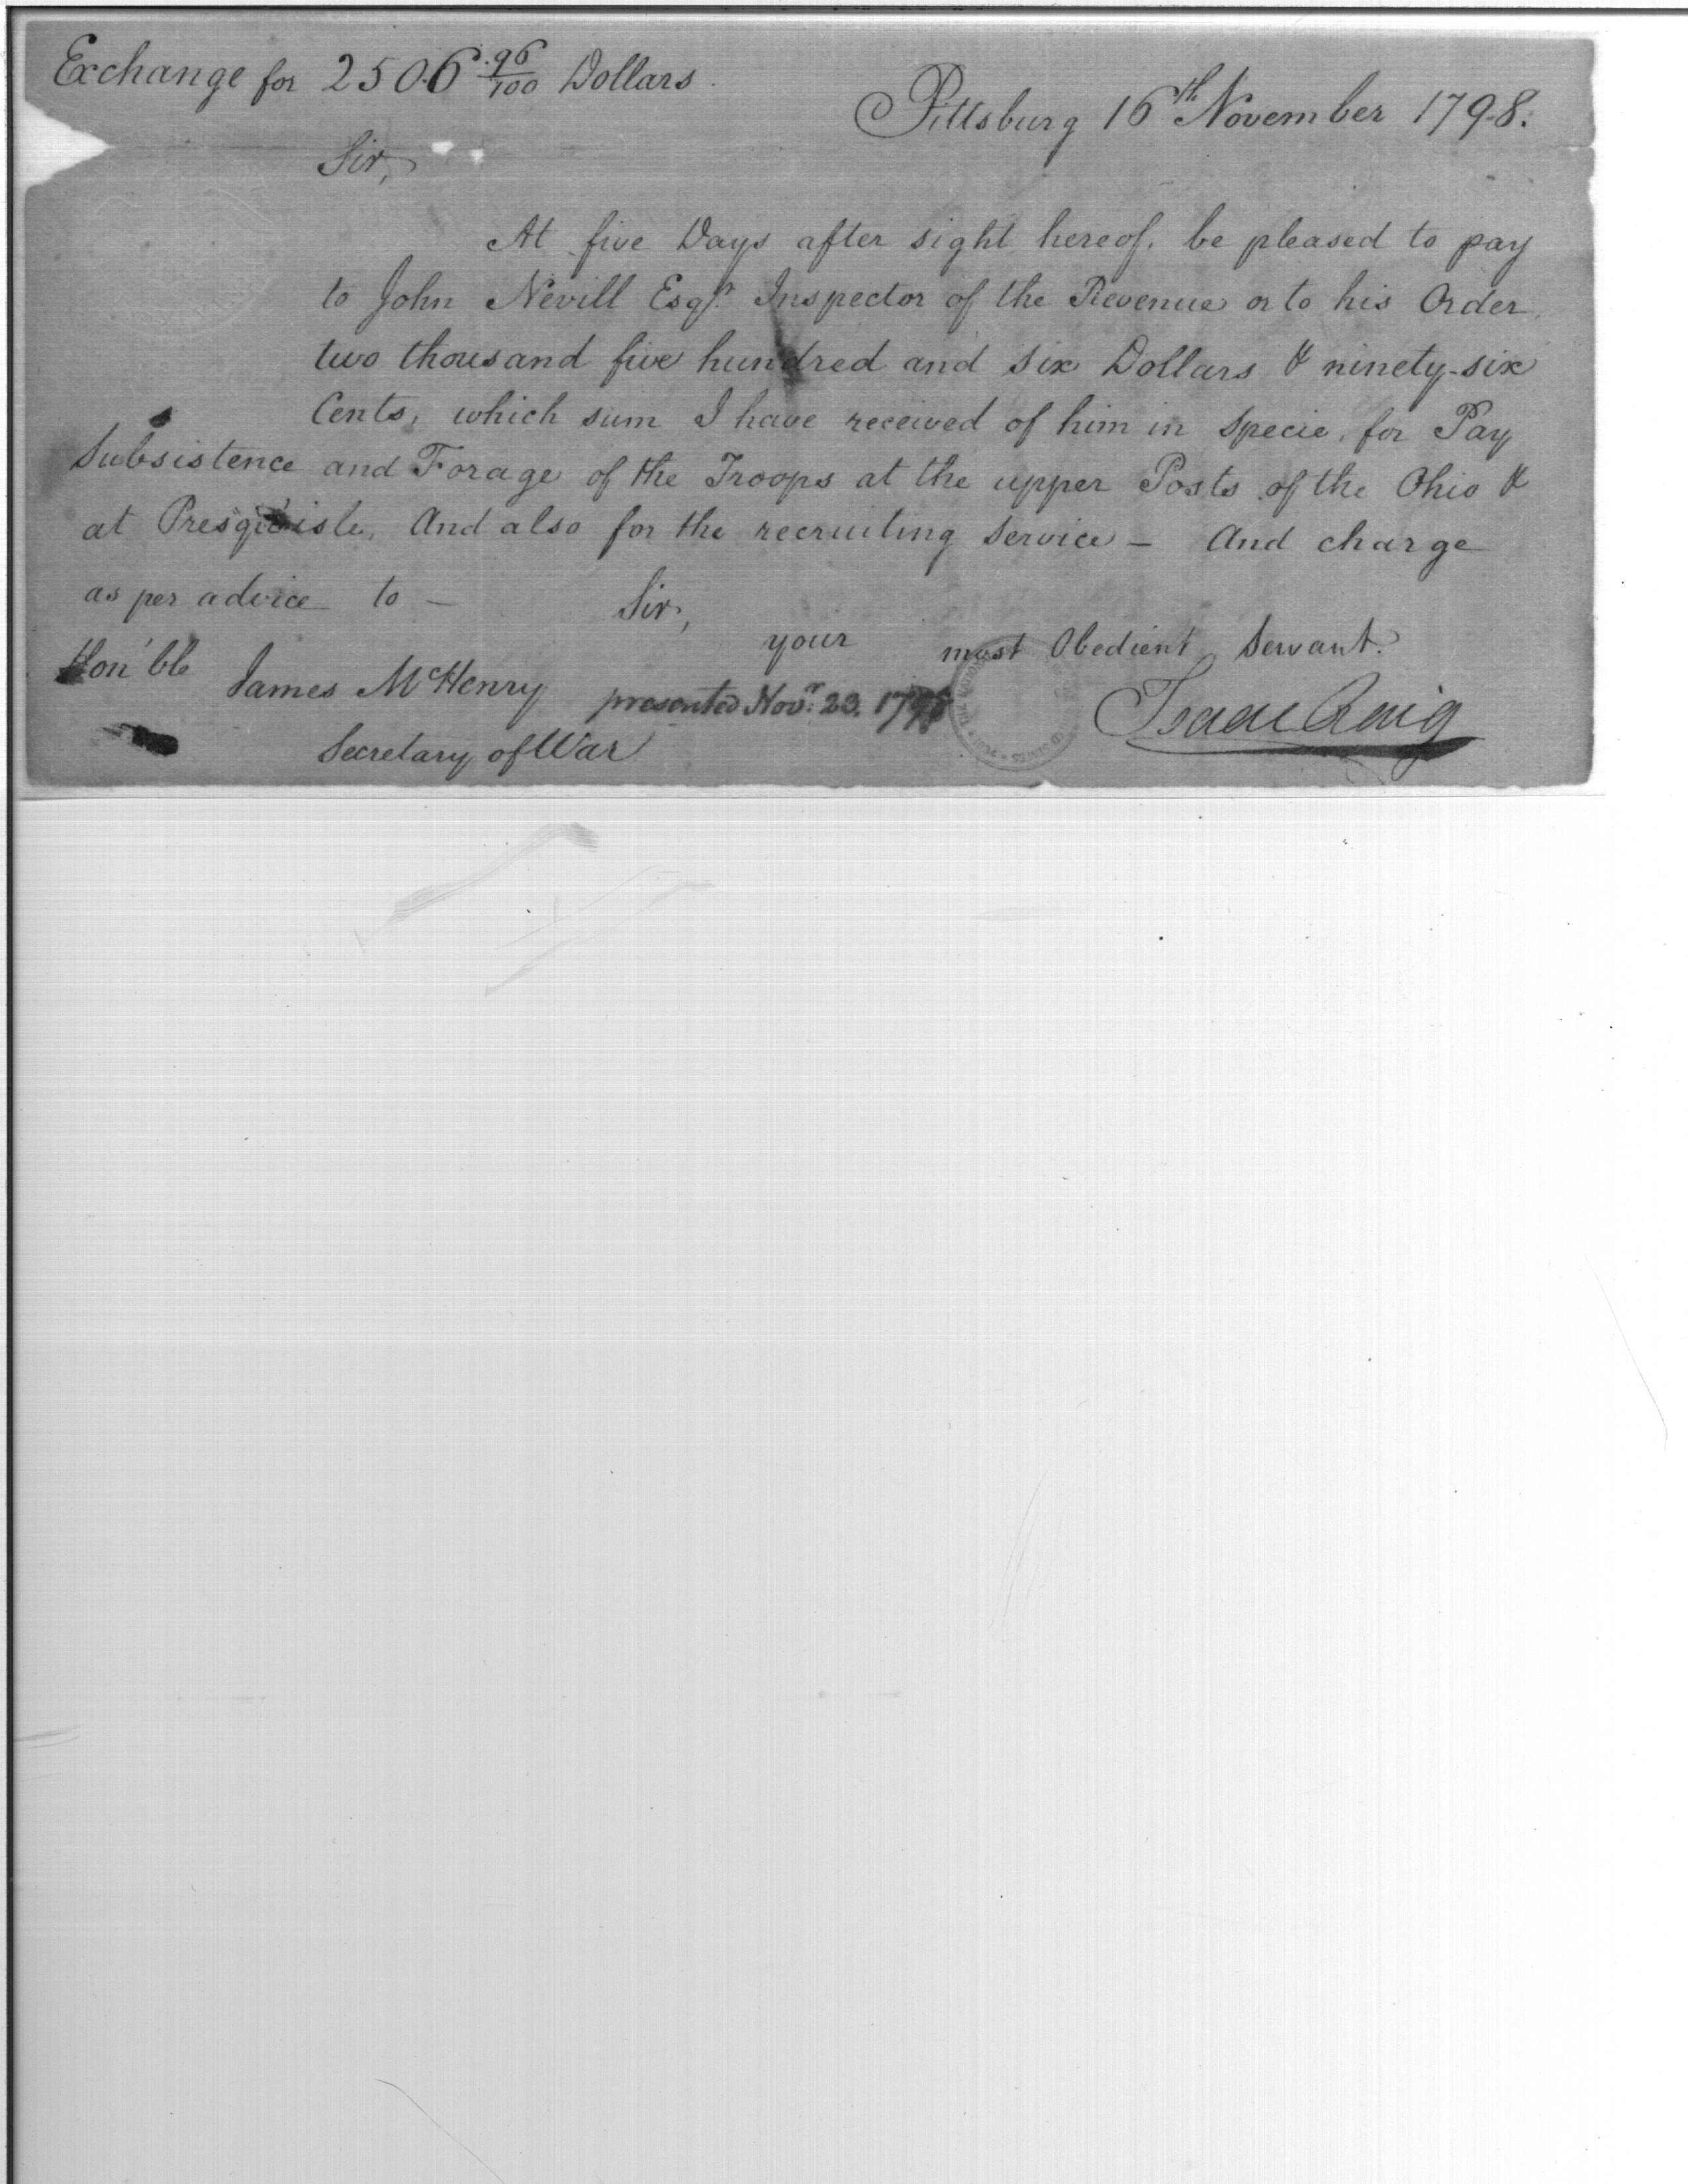 Exchange for 2506 96/100 Dollars.
Pittsburg 16th November 1798.
Sir,
At five Days after sight hereof, be pleased to pay
to John Nevill Esqr. Inspector of the Revenue or to his Order
two thousand five hundred and six Dollars & ninety-six
Cents, which sum I have received of him in specie, for Pay
Subsistence and Forage of the Troops at the upper Posts of the Ohio &
at Presqu'isle, And also for the recruiting Service — And charge
as per advice to —
Sir,
your most Obedient Servant.
Isaac Craig
Hon'ble James McHenry
Secretary of War
presented Novr. 23. 1798